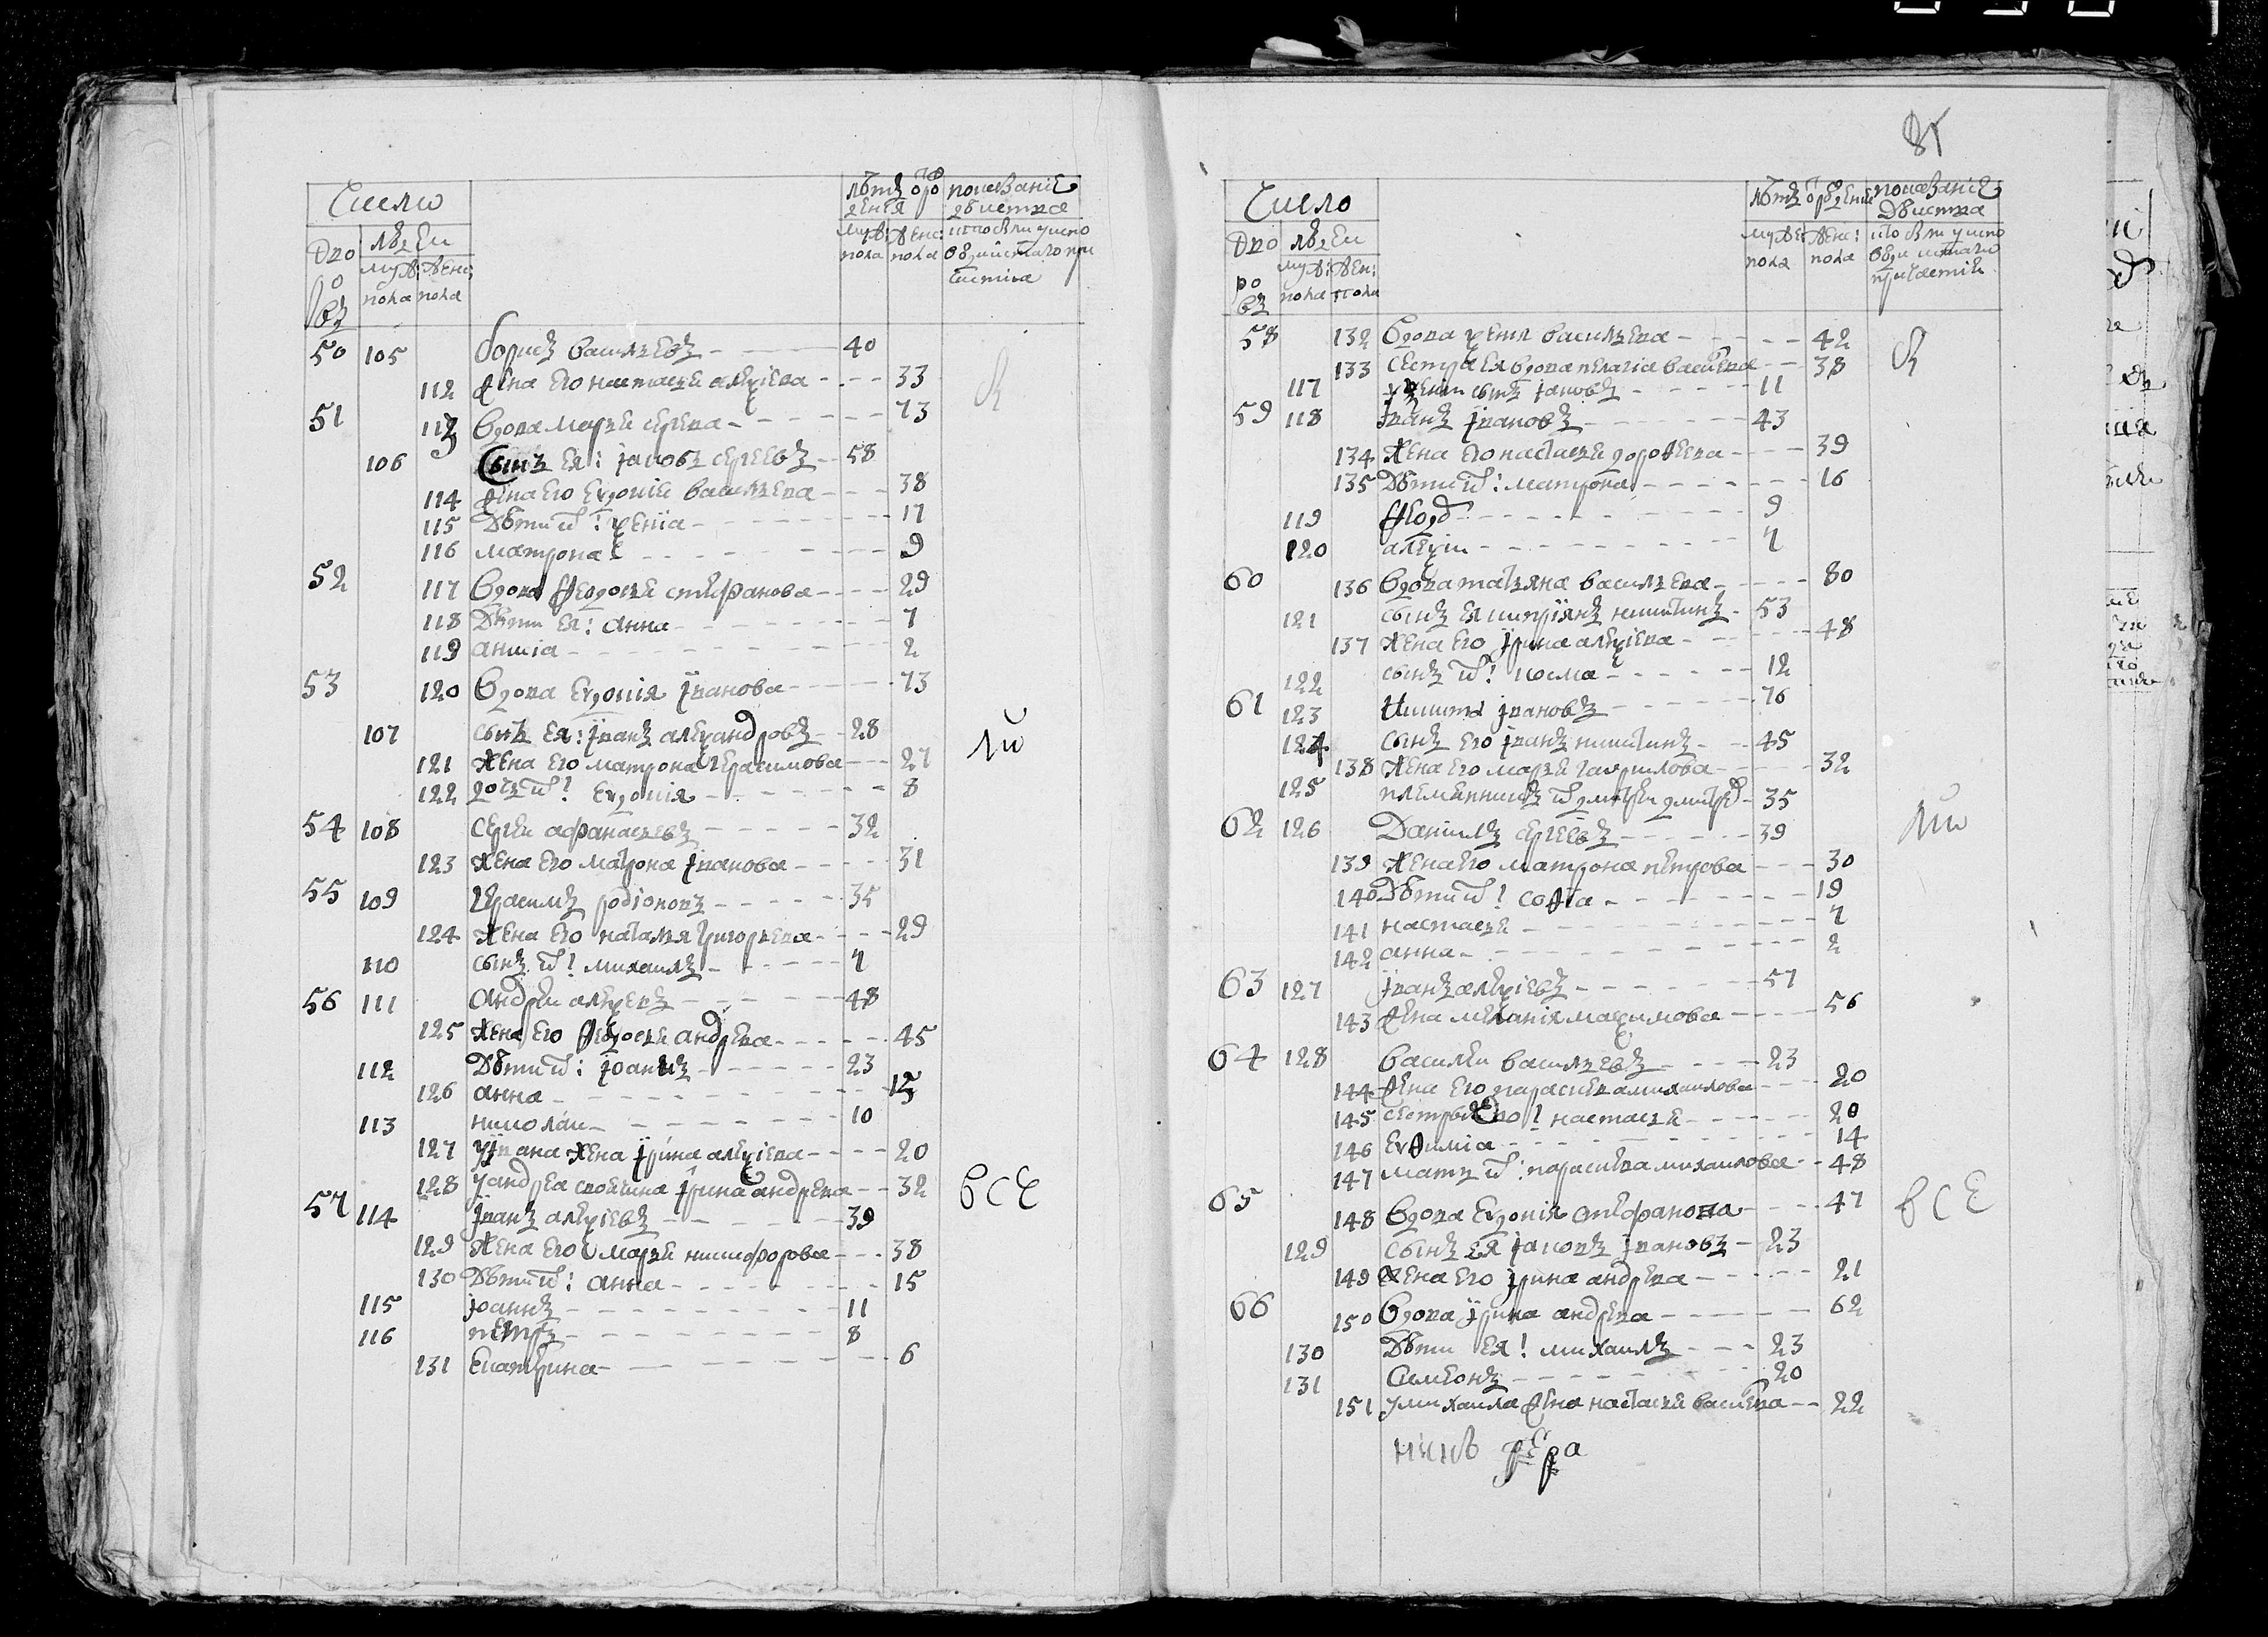 Число
Дворовъ
людей
мужеска пола
женска пола
лѣтъ отъ рожденїя
мужеска пола
женска пола
показанїе действа
50 105 борисъ васильевъ 40
112 жена его настасья алеѯіева 33
51 113 вдова марья сергѣева 73
106 Сынъ ея: Іаковъ сергеевъ 58
114 жена его евдокія васильева 38
115 Дѣти их: ѯенїа 17
116 матрона 9
52 117 вдова ѳедосья стефанова 29
118 Дѣти ея: анна 7
119 анисіа 2
53 120 вдова евдокия Iванова 73
107 сынъ ея: Iванъ алеѯандровъ 28
121 жена его матрона герасимова 27
122 дочь их! евдокия 8
54 108 сергеи афанасьевъ 32
123 жена его матрона Iванова 31
55 109 Герасимъ родіоновъ 35
124 жена его наталья григорьева 29
110 сынъ их! михаилъ 4
56 111 Андреи алеѯеевъ 48
125 жена его ѳедосья андреева 45
112 Дѣти их: Iоаннъ 23
126 анна 15
113 николаи 10
127 у Iвана жена Iрина алеѯіева 20
128 у андреа своячина Iрина андреева 32
57 114 Iванъ алеѯіевъ 39
129 жена его марья никифорова 38
130 Дѣти их: анна 15
115 Iоаннъ 11
116 петръ 8
131 екатерина 6
лю
все
81
Число
Дворовъ
людеи
мужеска пола
женска пола
лѣтъ отъ рожденїя
мужеска пола
женска пола
показанїе Действа
58 132 вдова ѯенїя васильева 42
133 сестра ея вдова пелагіа васильева 38
117 у ѯенїи сынъ Iаковъ 11
59 118 Iванъ Iвановъ 43
134 жена его настасья дороѳеева 39
135 Дѣти их: матрона 16
119 ѳеодоръ 9
120 алеѯіи 4
60 136 вдова татьяна васильева 80
121 сынъ ея кипріянъ никитинъ 53
137 жена его Iрина алеѯіева 48
122 сынъ их! косма 12
61 123 Никита Iвановъ 76
124 сынъ его Iванъ никитинъ 45
138 жена его марья гаврилова 32
125 племянникъ их дмитреи дмитріевъ 35
62 126 Даниилъ сергіевъ 39
139 жена его матрона петрова 30
140 Дѣти их! софіа 19
141 настасья 4
142 анна 2
63 127 Iванъ алеѯіевъ 57
143 жена меланія маѯимова 56
64 128 василеи васильевъ 23
144 жена его параскева михаилова 20
145 сестры его! настасья 20
146 евѳиміа 14
147 мать их: параскева михаилова 48
65 148 вдова евдокия стефанова 47
129 сынъ ея Iаковъ Iвановъ 23
149 жена его Iрина андреева 21
66 150 вдова Iрина андреева 62
130 Дѣти ея! михаилъ 23
131 Симеонъ 20
151 у михаила жена настасья васильева 22
лю
все